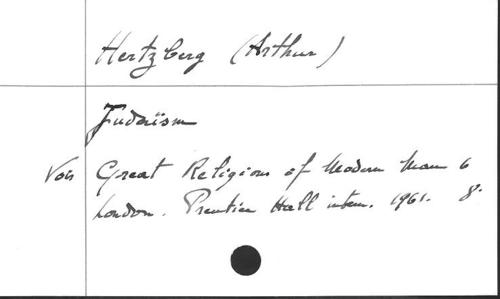 Hertzberg (Arthur)
Judaïsm
Voir Great Religions of Modern Man 6
London. Prentice Hall intern. 1961. 8°